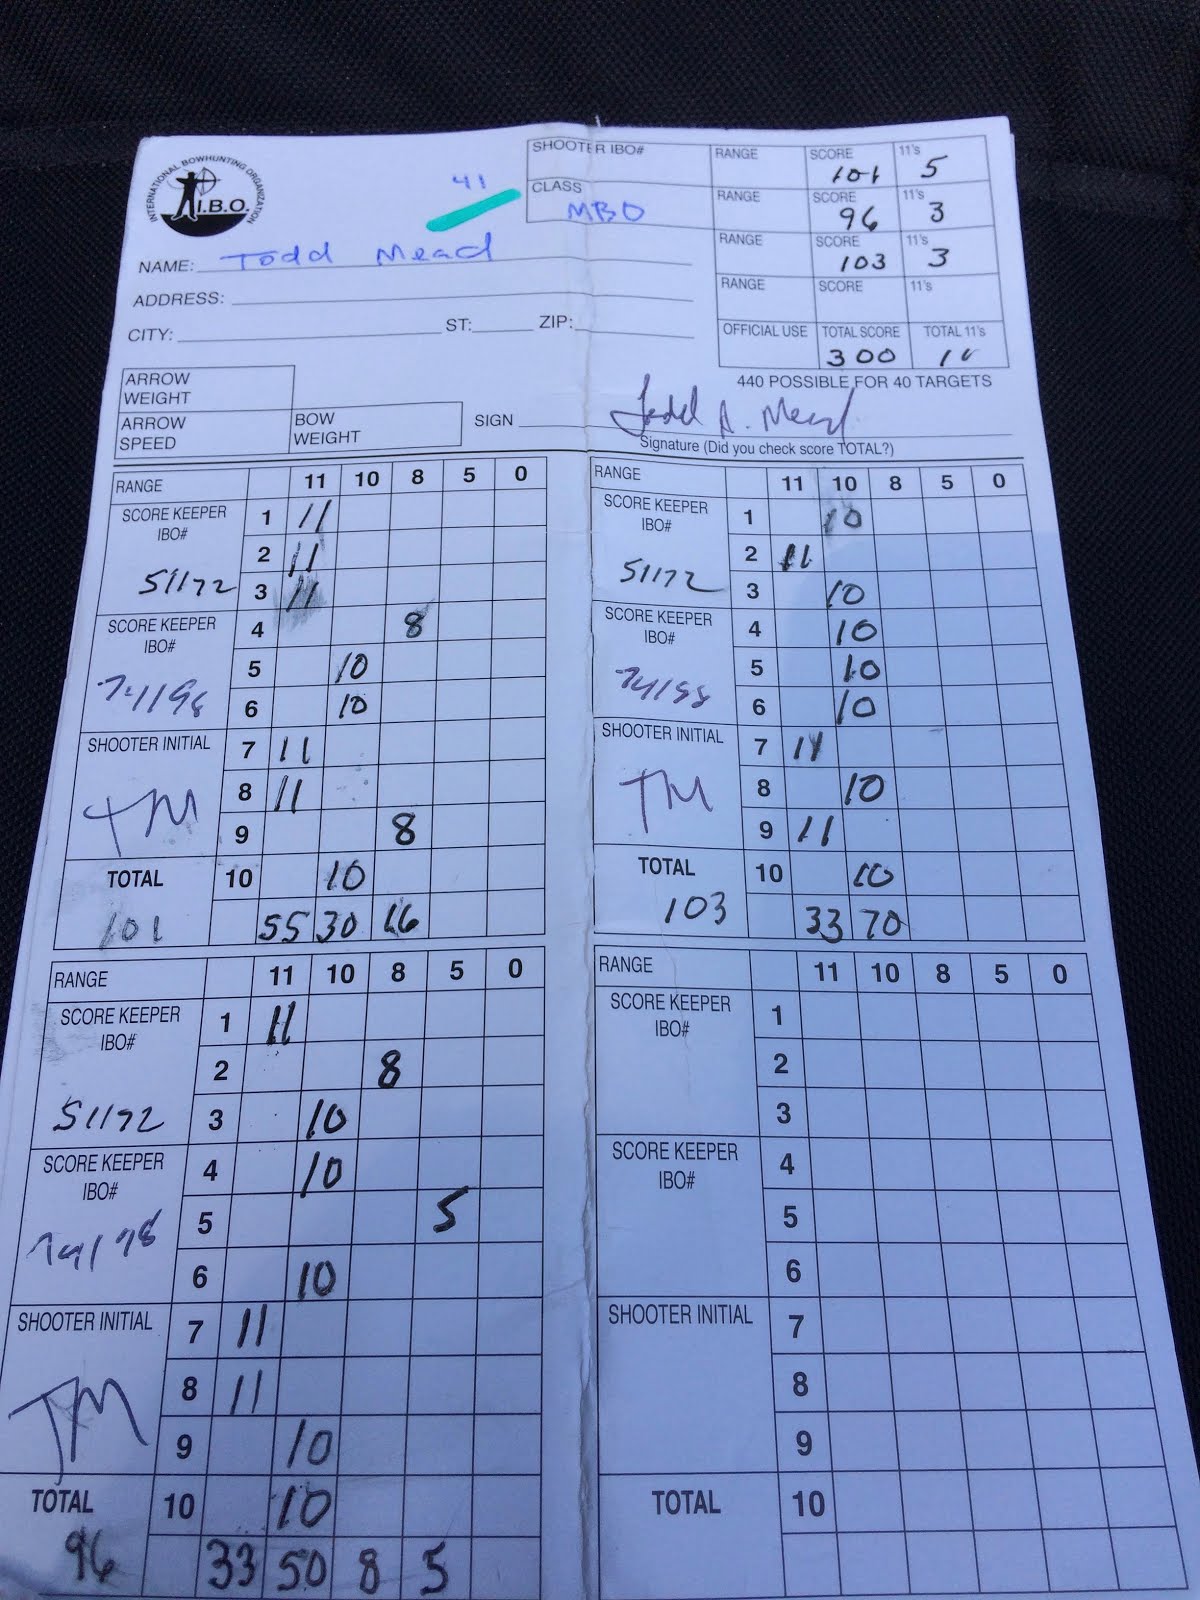 INTERNATIONAL BOWHUNTING ORGANIZATION
I.B.O.
41
SHOOTER IBO#
CLASS
MBO
RANGE SCORE 101 11's 5
RANGE SCORE 96 11's 3
RANGE SCORE 103 11's 3
RANGE SCORE 11's
OFFICIAL USE TOTAL SCORE 300 TOTAL 11's
440 POSSIBLE FOR 40 TARGETS
NAME: Todd Mead
ADDRESS:
CITY: ST: ZIP:
ARROW WEIGHT
ARROW SPEED
BOW WEIGHT
SIGN Todd A. Mead
Signature (Did you check score TOTAL?)
RANGE 11 10 8 5 0
SCORE KEEPER IBO#
51172
SCORE KEEPER IBO#
SHOOTER INITIAL
TM
1 11
2 11
3 11
4 8
5 10
6 10
7 11
8 11
9 8
10 10
TOTAL
101 55 30 16
RANGE 11 10 8 5 0
SCORE KEEPER IBO#
51172
SCORE KEEPER IBO#
SHOOTER INITIAL
TM
1 10
2 11
3 10
4 10
5 10
6 10
7 11
8 10
9 11
10 10
TOTAL
103 33 70
RANGE 11 10 8 5 0
SCORE KEEPER IBO#
51172
SCORE KEEPER IBO#
SHOOTER INITIAL
TM
1 11
2 8
3 10
4 10
5 5
6 10
7 11
8 11
9 10
10 10
TOTAL
96 33 50 8 5
RANGE 11 10 8 5 0
SCORE KEEPER IBO#
SCORE KEEPER IBO#
SHOOTER INITIAL
1
2
3
4
5
6
7
8
9
10
TOTAL